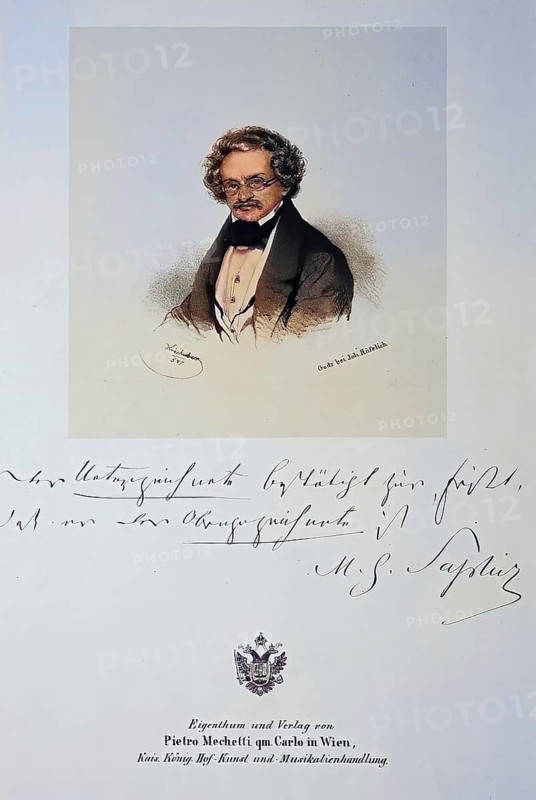 PHOTO12
Kriehuber
847
Gedr. bei Joh. Höfelich
der Unterzeichnete bestätigt zur
daß er der Obengezeichnete ist
M. G. Saphir
Eigenthum und Verlag von
Pietro Mechetti qm. Carlo in Wien,
Kais. König. Hof-Kunst und Musikalienhandlung.